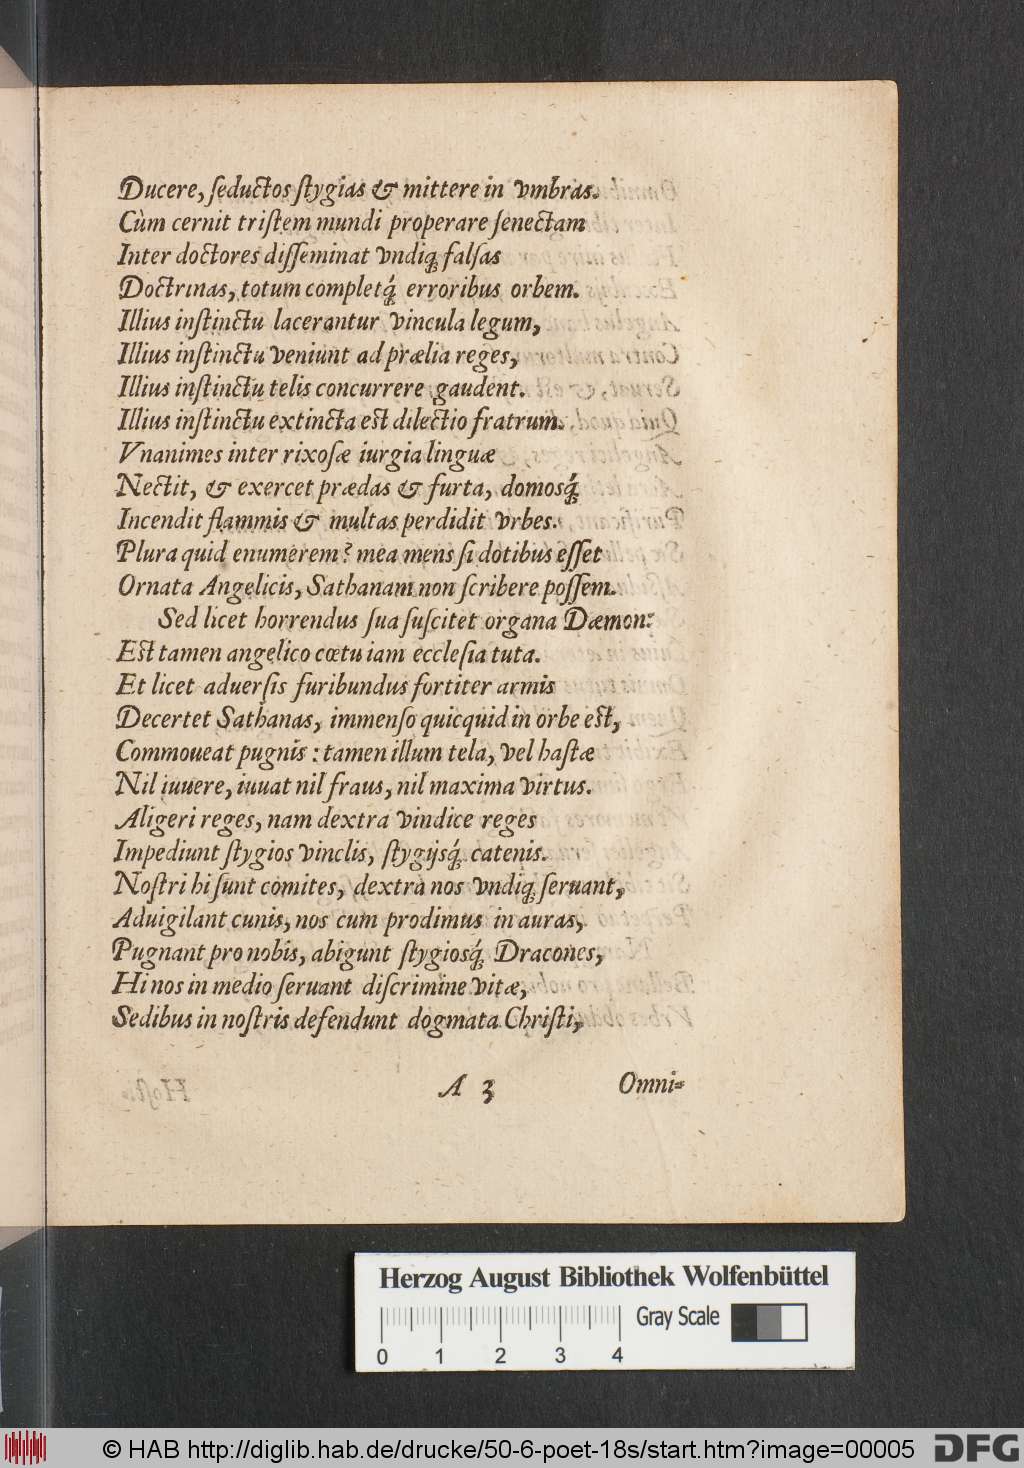 Ducere, ſeductos ſtygias & mittere in vmbras.
Cùm cernit triſtem mundi properare ſenectam
Inter doctores diſſeminat vndiq́; falſas
Doctrinas, totum completq́; erroribus orbem.
Illius inſtinctu lacerantur vincula legum,
Illius inſtinctu veniunt ad prælia reges,
Illius inſtinctu telis concurrere gaudent.
Illius inſtinctu extincta est dilectio fratrum.
Vnanimes inter rixoſæ iurgia linguæ
Nectit, & exercet prædas & furta, domosq́;
Incendit flammis & multas perdidit vrbes.
Plura quid enumerem? mea mens ſi dotibus eſſet
Ornata Angelicis, Sathanam non ſcribere poſſem.
Sed licet horrendus ſua ſuſcitet organa Dæmon:
Est tamen angelico cœtu iam eccleſia tuta.
Et licet aduerſis furibundus fortiter armis
Decertet Sathanas, immenſo quicquid in orbe est,
Commoueat pugnis: tamen illum tela, vel haſtæ
Nil iuuere, iuuat nil fraus, nil maxima virtus.
Aligeri reges, nam dextra vindice reges
Impediunt ſtygios vinclis, ſtygijsq́; catenis.
Noſtri hi ſunt comites, dextrà nos vndiq; ſeruant,
Aduigilant cunis, nos cum prodimus in auras,
Pugnant pro nobis, abigunt ſtygiosq́; Dracones,
Hi nos in medio ſeruant diſcrimine vitæ,
Sedibus in noſtris defendunt dogmata Chriſti,
A 3 Omni=
Herzog August Bibliothek Wolfenbüttel
Gray Scale
0 1 2 3 4
© HAB http://diglib.hab.de/drucke/50-6-poet-18s/start.htm?image=00005 DFG